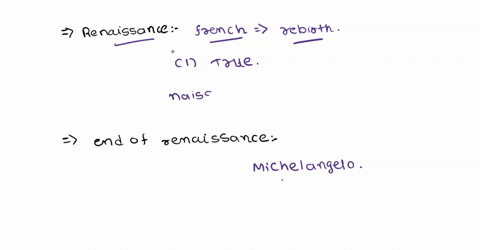 => Renaissance:- french => rebirth.
(1) True.
naisc
=> end of renaissance:-
Michelangelo.